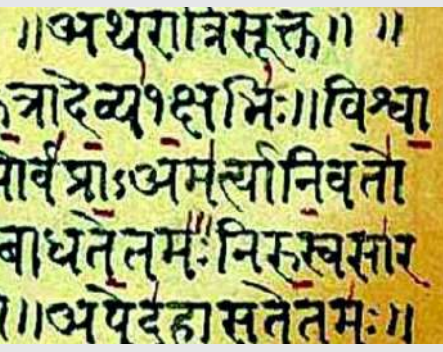 ॥अथरात्रिसूक्त॥ ॥
त्रादेव्य१क्षभिः॥विश्वा
ओर्वप्राऽअमर्त्यानिवतो
बाधतेतमः॥निरुस्वसार
॥अपेदुहासतेतमः॥